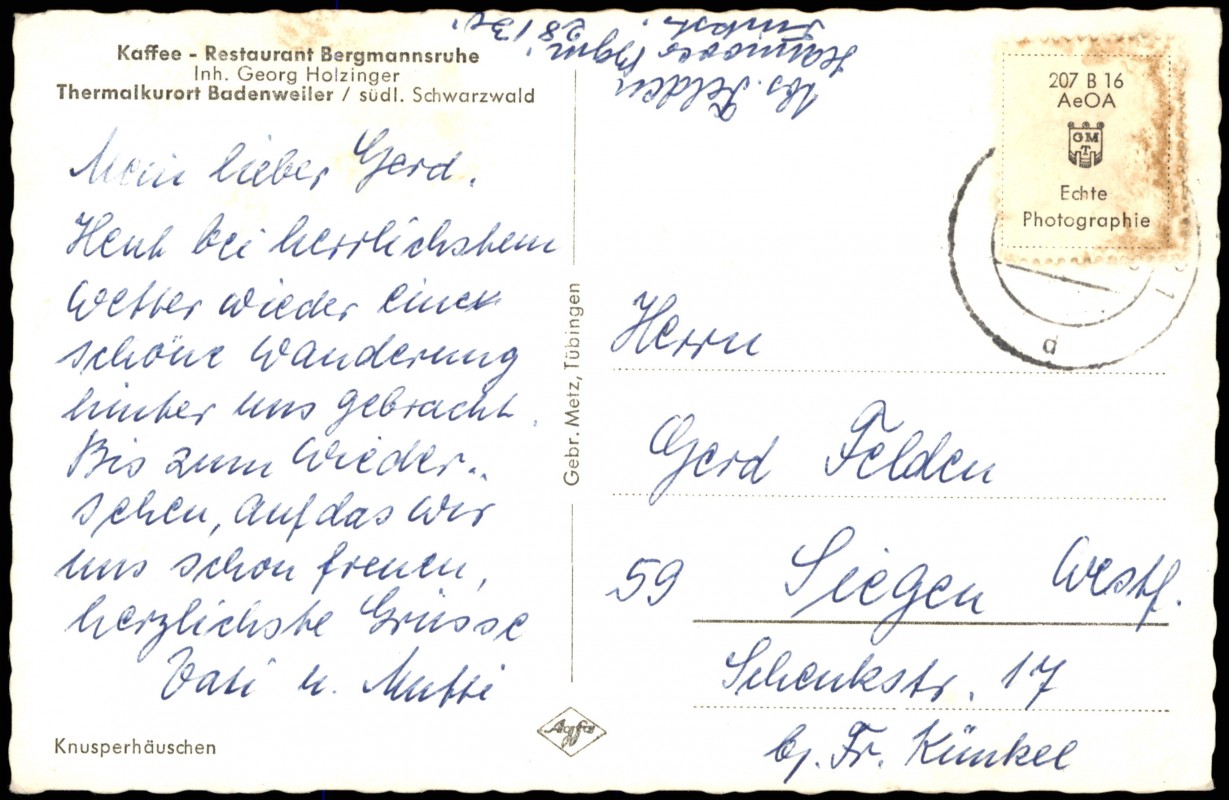 Kaffee - Restaurant Bergmannsruhe
Inh. Georg Holzinger
Thermalkurort Badenweiler / südl. Schwarzwald
Mein lieber Gerd.
Heut bei herrlichstem
Wetter wieder eine
schöne Wanderung
hinter uns gebracht.
Bis zum Wieder-
sehen, auf das wir
uns schon freuen,
herzlichste Grüsse
Vati u. Mutti
Knusperhäuschen
Gebr. Metz, Tübingen
Agfa
Abs. Felden
Hannover
207 B 16
AeOA
GMT
Echte
Photographie
a
Herrn
Gerd Felden
59 Siegen Westf.
Schenkstr. 17
bj. Fr. Künkel